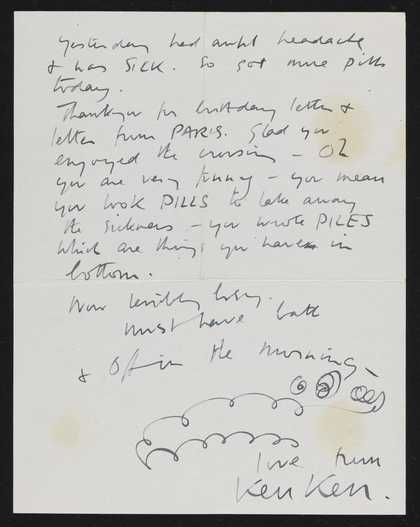 Yesterday had awful headache
& was SICK. So got more pills
today.
Thankyou for birthday letter &
letter from PARIS. Glad you
enjoyed the crossing – Oh
you are very funny – you mean
you took PILLS to take away
the sickness – you wrote PILES
which are things you have in
bottom.
Now terribly busy.
must have bath
& Off in the morning –
love from
Ken Ken.